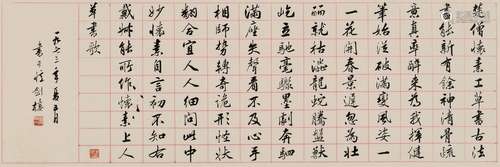 楚僧懷素工草書古法
盡能新有餘神清骨竦
意真率醉來為我揮健
筆始從破體變風姿一
一花開春景遲忽為壯
麗就枯澀龍蛇騰盤獸
屹立馳毫驟墨劇奔駟
滿座失聲看不及心手
相師勢轉奇詭形怪狀
翻合宜人人細問此中
妙懷素自言初不知右
戴叔倫所作懷素上人
草書歌
一九七三年 五月
書於 劍橋